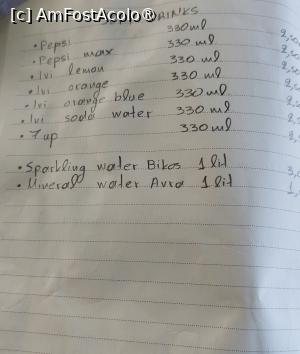 [c] AmFostAcolo®
DRINKS
• Pepsi 330 ml
• Pepsi max 330 ml
• Ivi lemon 330 ml
• Ivi orange 330 ml
• Ivi orange blue 330 ml.
• Ivi soda water 330 ml
• 7up 330 ml
• Sparkling water Bikos 1 lit
• Mineral water Avra 1 lit